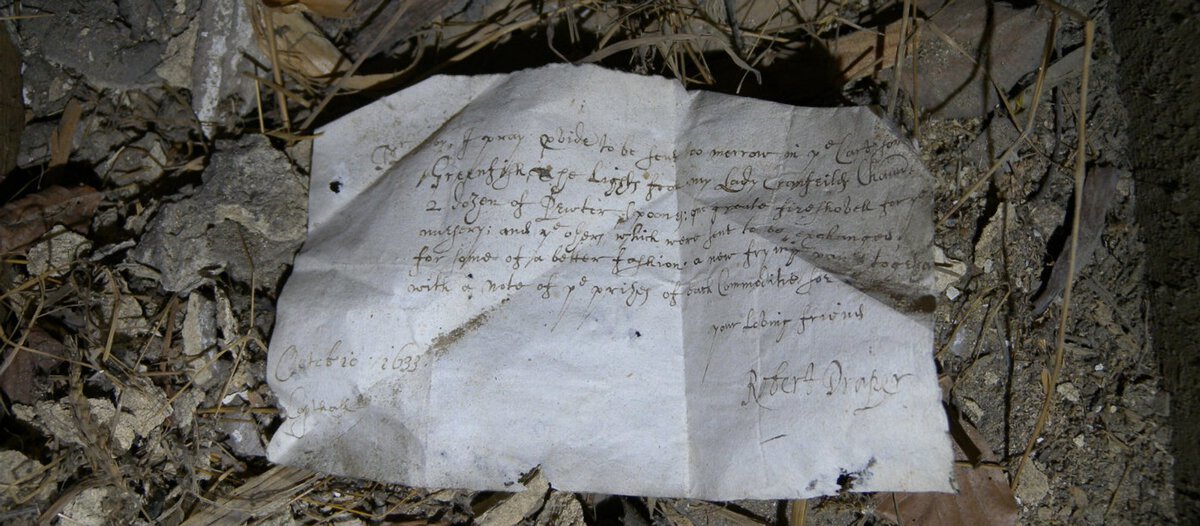 Mr I pray pvide to be sent too morrow in ye Cart some
Greenfish, ye Lights from my Lady Cranfeilds Chamb
2 dozen of Pewter spoons: one greate fireshovell for ye
nursery; and ye others which were sent to be exchanged
for some of a better fashion, a new frying pan together
with a note of ye prises of such Commodities for
your loving friend
Robert Draper
Octobre 1633
Copthall